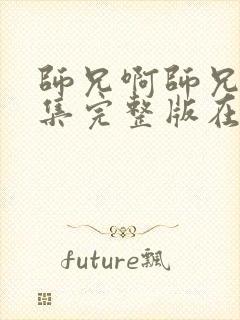 師兄啊師兄
集完整版在
future飄